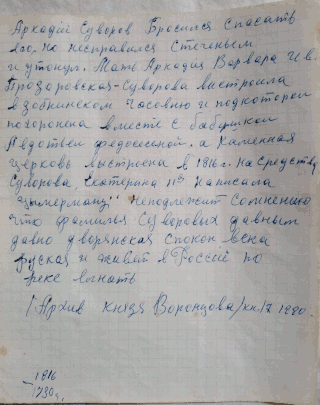 Аркадий Суворов Бросился Спасать
его, но несправился Стеченьем
и утонул. Мать Аркадия Варвара Ив.
Прозоровская-Суворова выстроила
часовню и под которой
похоронена вместе с бабушкой
Федосьей. а Каменная
церковь выстроена в 1816 г. на средству
Суворова, Екатерина IIая написала
"Цимерману" неподлежит Сомнению
что фамилья Суворовых давным
давно дворянская спокон века
руская и живет в России по
реке
(Архив князя Воронцова/кн.17 1880
1816
1730 г.